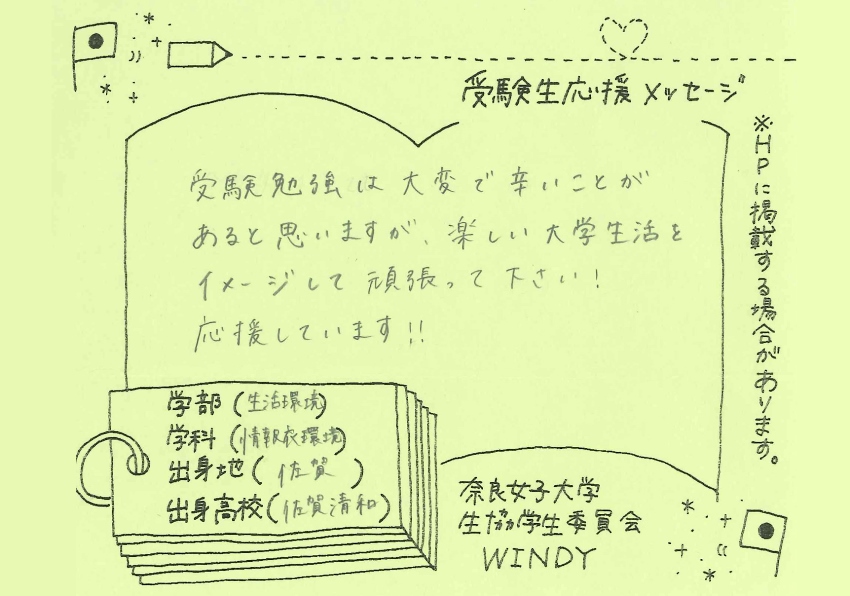 受験生応援メッセージ
※HPに掲載する場合があります。
受験勉強は大変で辛いことが
あると思いますが、楽しい大学生活を
イメージして頑張って下さい！
応援しています!!
学部（生活環境）
学科（情報衣環境）
出身地（佐賀）
出身高校（佐賀清和）
奈良女子大学
生協学生委員会
WINDY